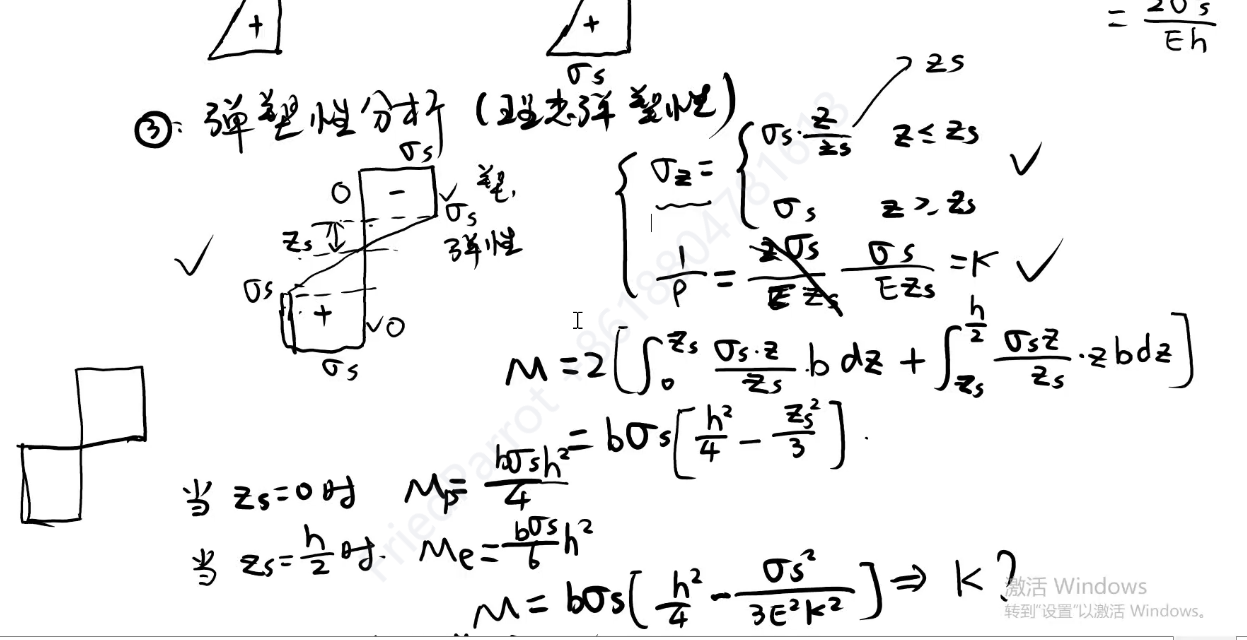 + +
= 2σs / Eh
σs
③: 弹塑性分析 (理想弹塑性)
zs
σs
0 - 塑,
σs
zs 弹性
σs
+ 0
σs
σz = { σs · z/zs z ≤ zs
σs z > zs
1/ρ = σs / Ezs = K
M = 2[∫₀^zs σs·z/zs · b dz + ∫_zs^(h/2) σsz/zs · z b dz]
= bσs[h²/4 - zs²/3] .
当 zs=0时 Mp = bσsh²/4
当 zs = h/2 时. Me = bσs/6 h²
M = bσs[h²/4 - σs²/3E²K²] ⇒ K?
FriedParrot +8618804781618
激活 Windows
转到"设置"以激活 Windows。